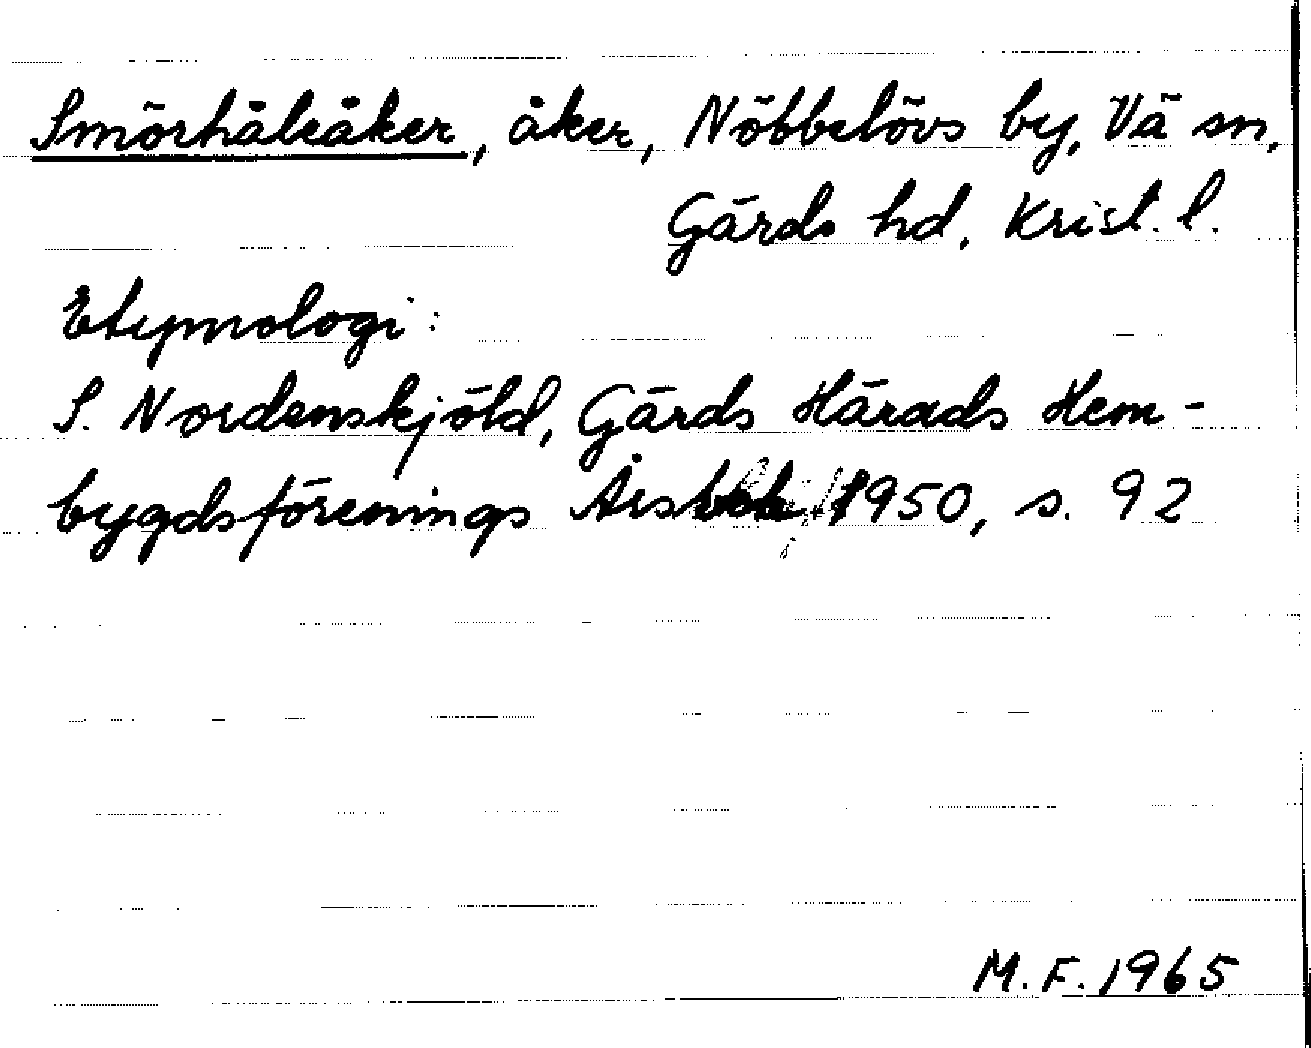 Smörhålsåker, åker, Nöbbelövs by, Vä sn,
Gärds hd, Krist. l.
Etymologi:
S. Nordenskjöld, Gärds Härads Hem-
bygdsförenings Årsbok 1950, s. 92
M.F. 1965